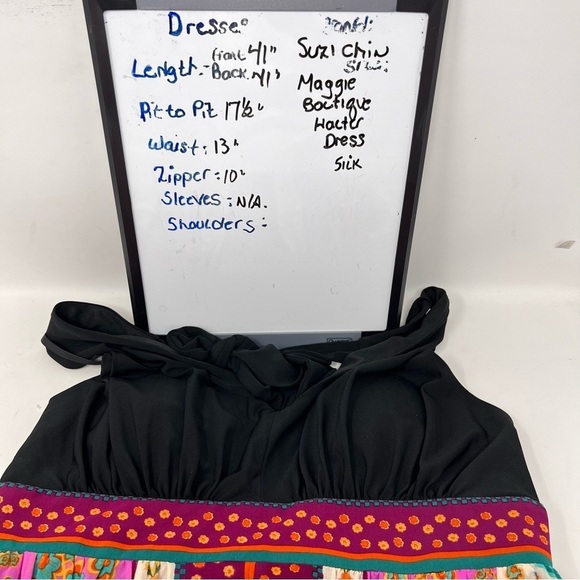 Dresses
Length:- front 41"
Back 41"
Pit to Pit 17½"
Waist: 13"
Zipper: 10"
Sleeves: N/A.
Shoulders:
Suzi Chin
Maggie
Boutique
Halter
Dress
Silk